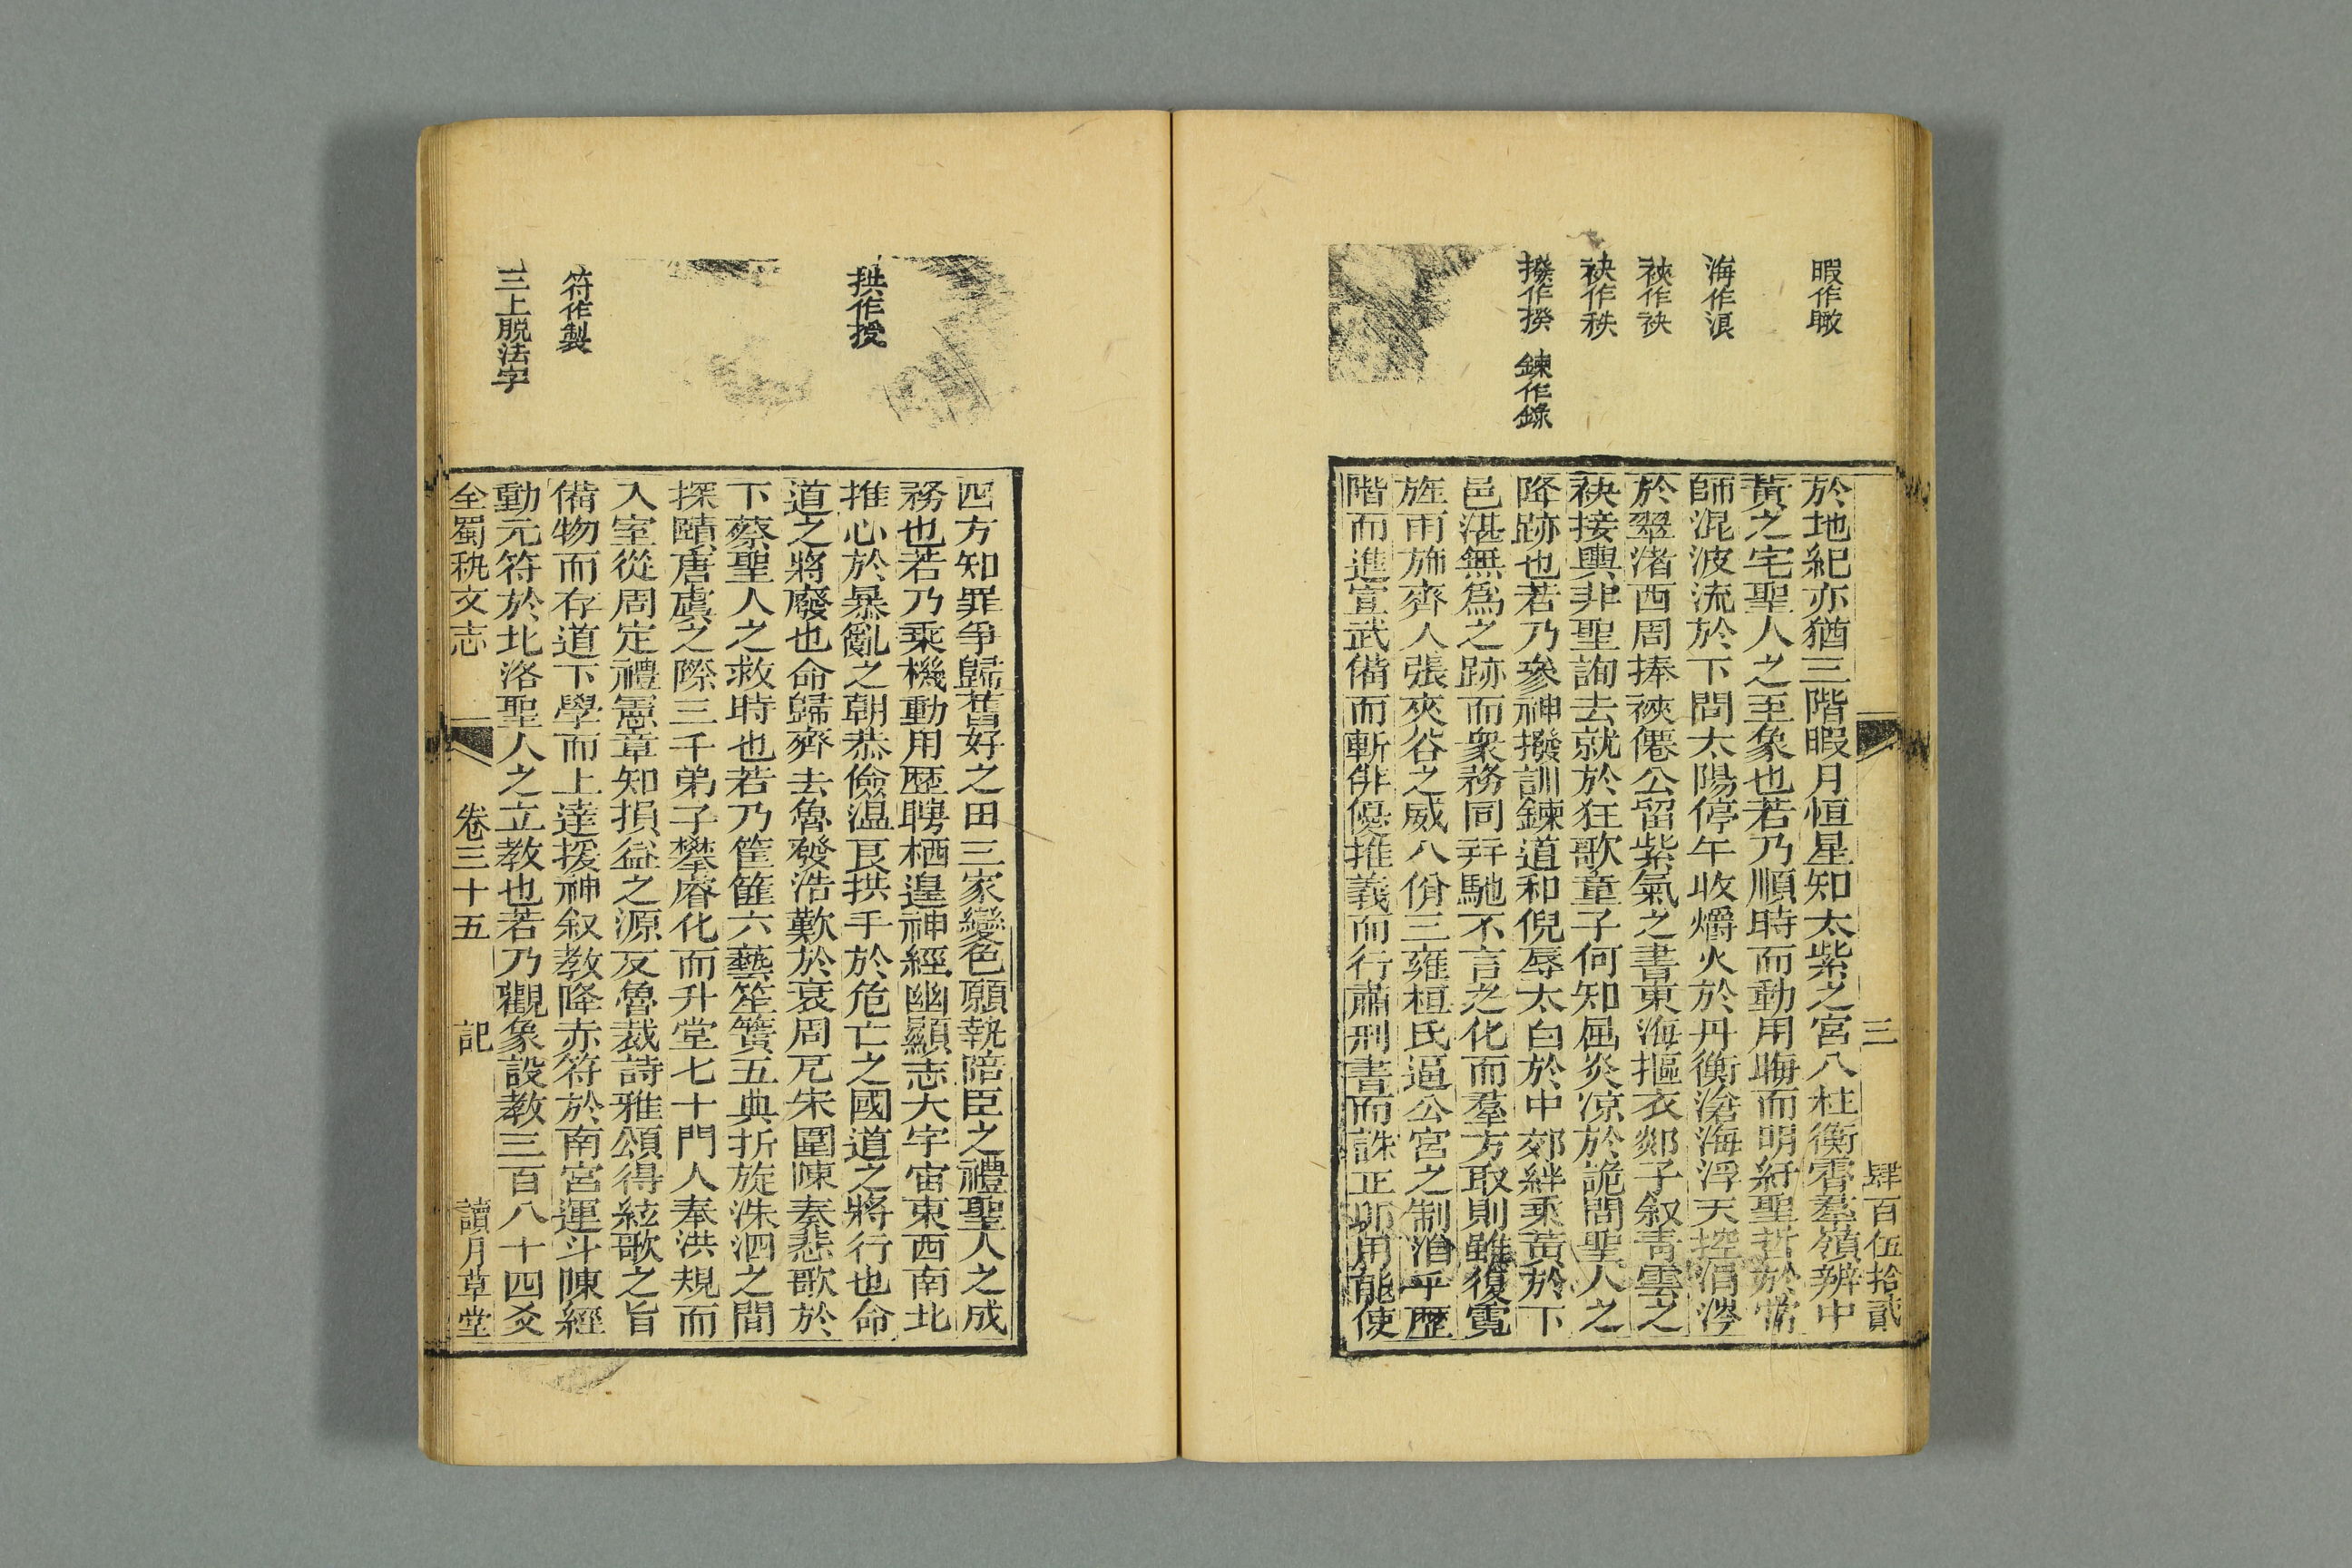 暇作瞰
海作浪
裌作袂
袂作秩
撥作揆 鍊作錄
三 肆百伍拾貳
於地紀亦猶三階暇月恒星知太紫之宮八柱衡霄羣嶺辨中
黃之宅聖人之至象也若乃順時而動用晦而明紆聖哲於常
師混波流於下問太陽停午收爝火於丹衡滄海浮天控涓涔
於翠渚西周捧裌僊公留紫氣之書東海摳衣郯子叙青雲之
袂接輿非聖詢去就於狂歌童子何知屈炎凉於詭問聖人之
降跡也若乃參神撥訓鍊道和倪辱太白於中郊絆乘黃於下
邑湛無爲之跡而衆務同幷馳不言之化而羣方取則雖復霓
旌雨斾齊人張夾谷之威八佾三雍桓氏逼公宮之制洎乎歷
階而進宣武備而斬俳優推義而行肅刑書而誅正卯用能使
拱作授
符作製
三上脱法字
四方知罪爭歸舊好之田三家變色願執陪臣之禮聖人之成
務也若乃乘機動用歷聘栖遑神經幽顯志大宇宙東西南北
推心於暴亂之朝恭儉温良拱手於危亡之國道之將行也命
道之將廢也命歸齊去魯發浩歎於衰周厄宋圍陳奏悲歌於
下蔡聖人之救時也若乃筐篚六藝笙簧五典折旋洙泗之間
探賾唐虞之際三千弟子攀睿化而升堂七十門人奉洪規而
入室從周定禮憲章知損益之源反魯裁詩雅頌得絃歌之旨
備物而存道下學而上達援神叙教降赤符於南宮運斗陳經
動元符於北洛聖人之立教也若乃觀象設教三百八十四爻
全蜀秇文志 卷三十五 記 讀月草堂